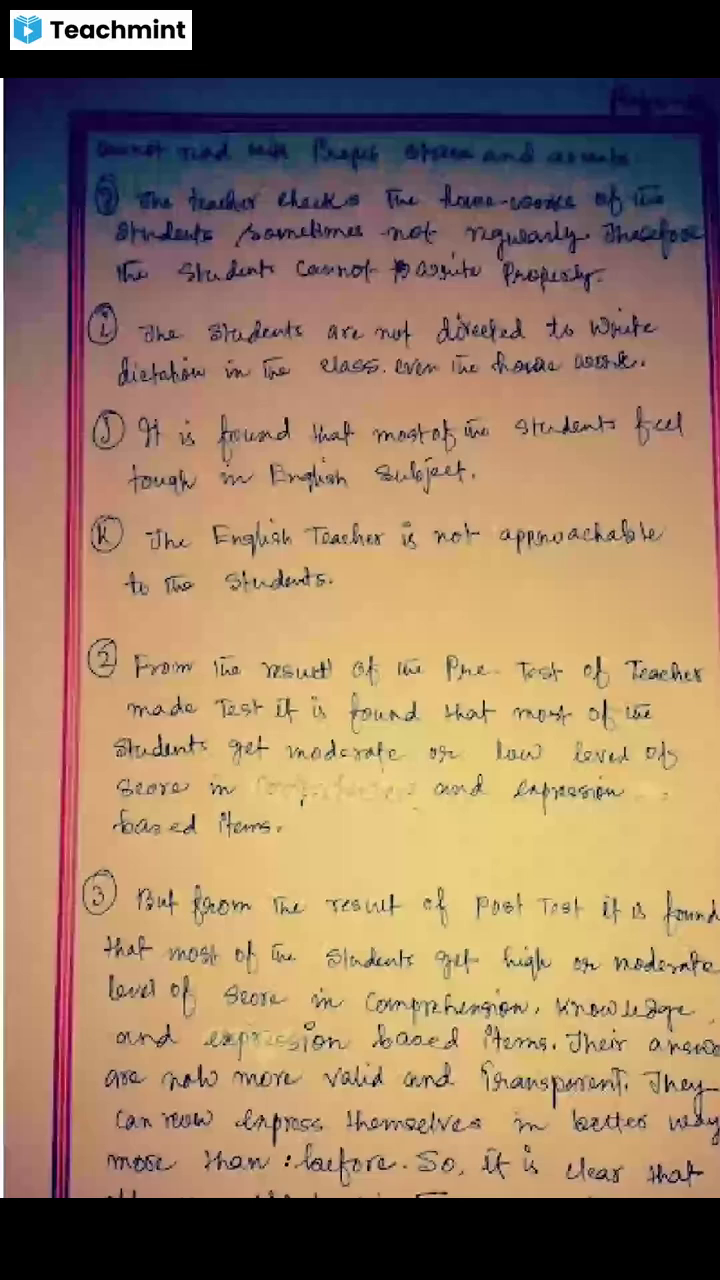 Teachmint
cannot read with Proper stress and accents
The teacher checks the home-works of the
students sometimes not regularly. Therefore
the students cannot write Properly.
(i) The students are not directed to write
dictation in the class. even the house work.
(J) It is found that most of the students feel
tough in English Subject.
(K) The English Teacher is not approachable
to the students.
(2) From the result of the Pre- Test of Teacher
made Test it is found that most of the
students get moderate or low level of
score in and expression
based items.
(3) But from the result of Post Test it is found
that most of the students get high or moderate
level of score in Comprhension, knowledge,
and expression based items. Their answ
are now more valid and Transparent. They
can now express themselves in better way
more than : before. So, it is clear that